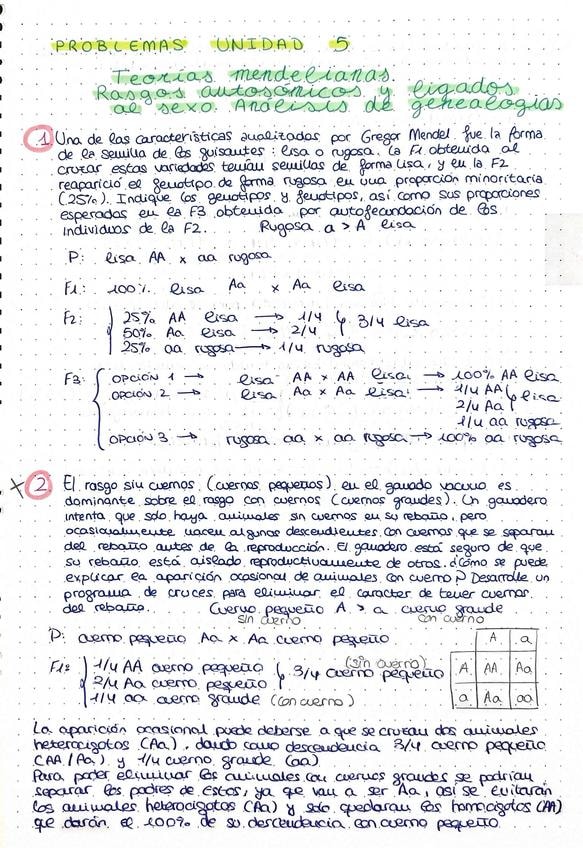 PROBLEMAS UNIDAD 5
Teorías mendelianas.
Rasgos autosómicos y ligados
al sexo. Análisis de genealogías
1 Una de las características analizadas por Gregor Mendel fue la forma
de la semilla de los guisantes: lisa o rugosa. La F1 obtenida al
cruzar estas variedades tenían semillas de forma lisa, y en la F2
reapareció el fenotipo de forma rugosa en una proporción minoritaria
(25%). Indique los genotipos y fenotipos, así como sus proporciones
esperados en la F3 obtenida por autofecundación de los
individuos de la F2. Rugosa a > A lisa
P: lisa AA x aa rugosa
F1: 100% lisa Aa x Aa lisa
F2: 25% AA lisa → 1/4 } 3/4 lisa
50% Aa lisa → 2/4
25% aa rugosa → 1/4 rugosa
F3: OPCIÓN 1 → lisa AA x AA lisa → 100% AA lisa
OPCIÓN 2 → lisa Aa x Aa lisa → 1/4 AA } lisa
2/4 Aa
1/4 aa rugosa
OPCIÓN 3 → rugosa aa x aa rugosa → 100% aa rugosa
x 2 El rasgo sin cuernos (cuernos pequeños) en el ganado vacuno es
dominante sobre el rasgo con cuernos (cuernos grandes). Un ganadero
intenta que solo haya animales sin cuernos en su rebaño, pero
ocasionalmente nacen algunos descendientes con cuernos que se separan
del rebaño antes de la reproducción. El ganadero está seguro de que
su rebaño está aislado reproductivamente de otros. ¿Cómo se puede
explicar la aparición ocasional de animales con cuerno? Desarrolle un
programa de cruces para eliminar el caracter de tener cuernos
del rebaño. Cuerno pequeño A > a cuerno grande
sin cuerno con cuerno
P: cuerno pequeño Aa x Aa cuerno pequeño
F1: 1/4 AA cuerno pequeño } 3/4 cuerno pequeño (sin cuerno)
2/4 Aa cuerno pequeño
1/4 aa cuerno grande (con cuerno)
A a
A AA Aa
a Aa aa
La aparición ocasional puede deberse a que se crucen dos animales
heterocigotos (Aa), dando como descendencia 3/4 cuerno pequeño
(AA/Aa) y 1/4 cuerno grande (aa)
Para poder eliminar los animales con cuernos grandes se podrían
separar los padres de estos, ya que van a ser Aa, así se evitarán
los animales heterocigotos (Aa) y solo quedarán los homocigotos (AA)
que darán el 100% de su descendencia con cuerno pequeño